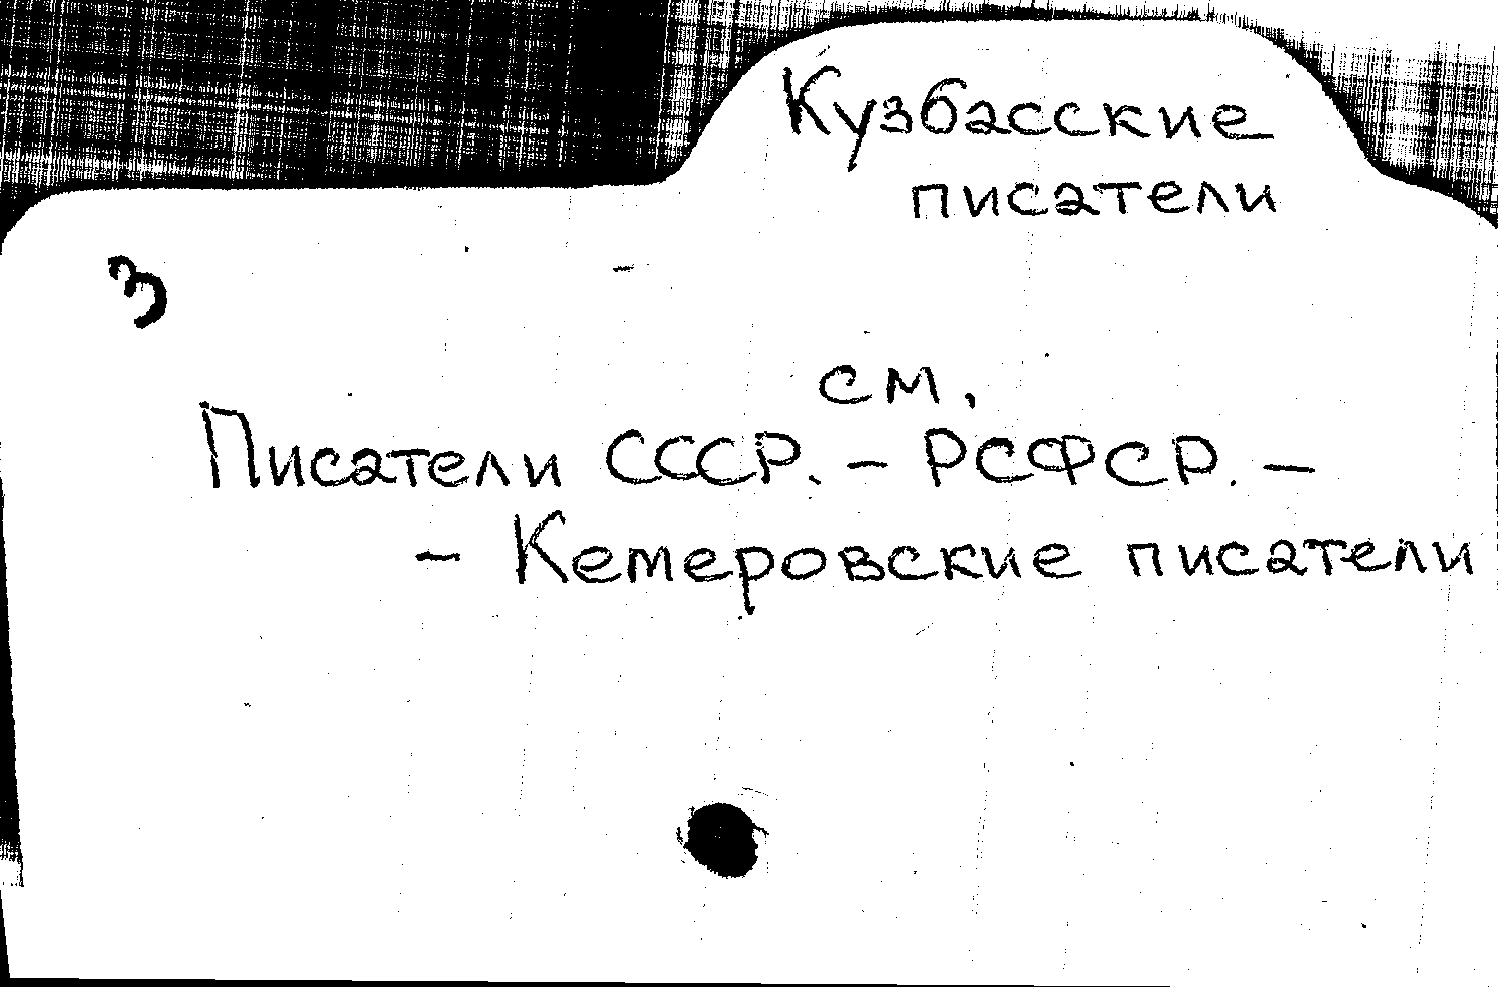 Кузбасские
писатели
3
см.
Писатели СССР. – РСФСР. –
– Кемеровские писатели